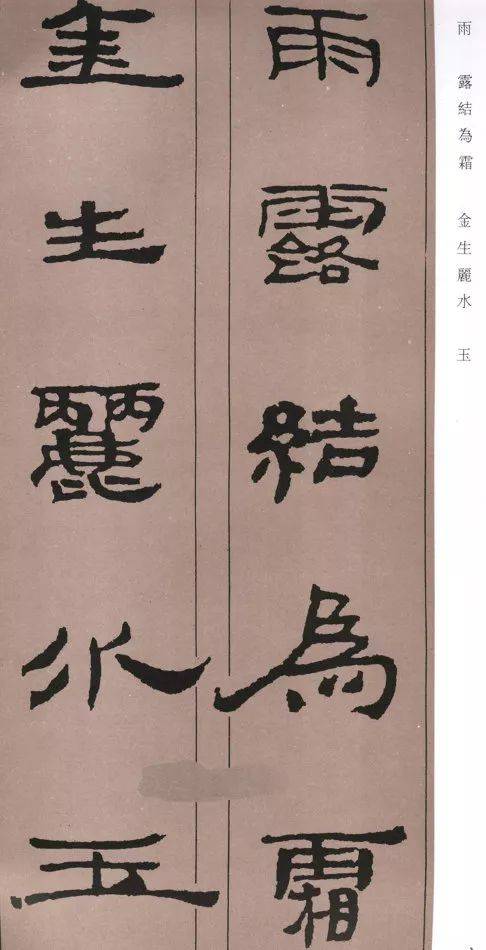 雨 露結為霜 金生麗水 玉
雨露結為霜
金生麗水玉